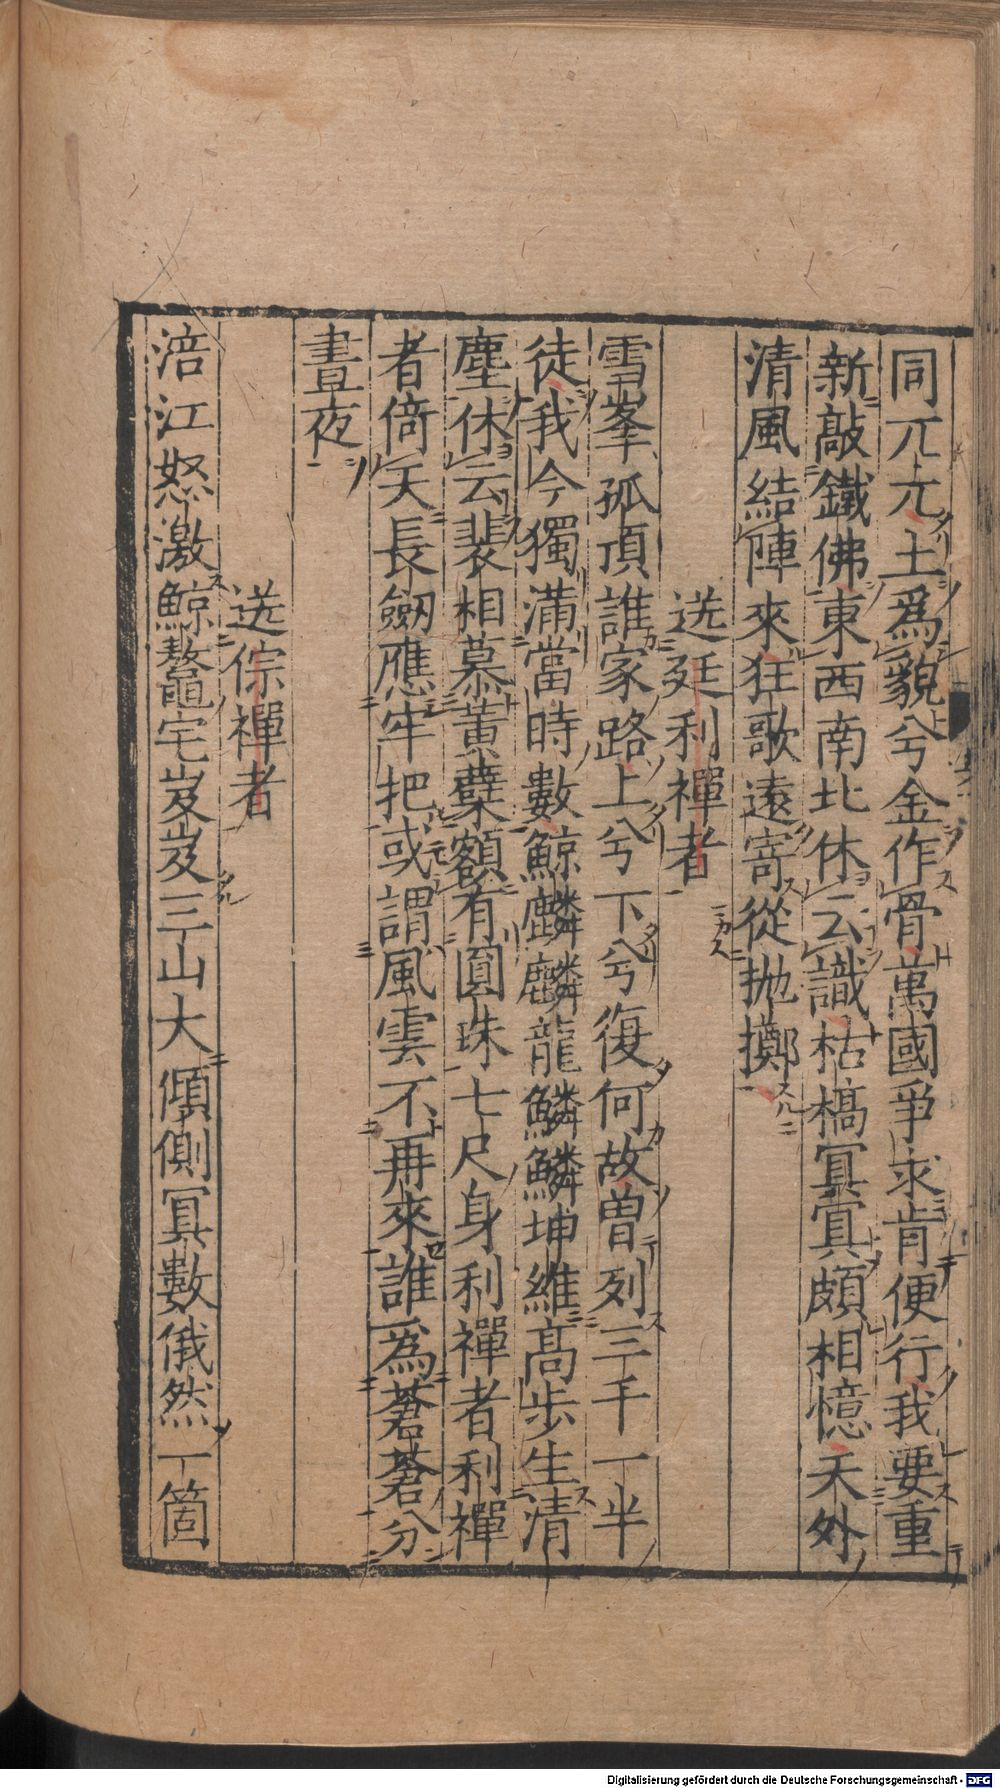 同兀兀土爲貌兮金作骨萬國爭求肯便行我要重
新敲鐵佛東西南北休云識枯槁冥冥頗相憶天外
清風結陣來狂歌遠寄從抛擲
送廷利禪者
雪峯孤頂誰家路上兮下兮復何故曽列三千一半
徒我今獨滿當時數鯨麟麟龍鱗鱗坤維高步生清
塵休云裴相慕黄蘗額有圓珠七尺身利禪者利禪
者倚天長劒應牢把或謂風雲不再來誰爲蒼蒼分
晝夜
送倧禪者
涪江怒激鯨鼇宅岌岌三山大傾側冥數俄然一箇
Digitalisierung gefördert durch die Deutsche Forschungsgemeinschaft - DFG